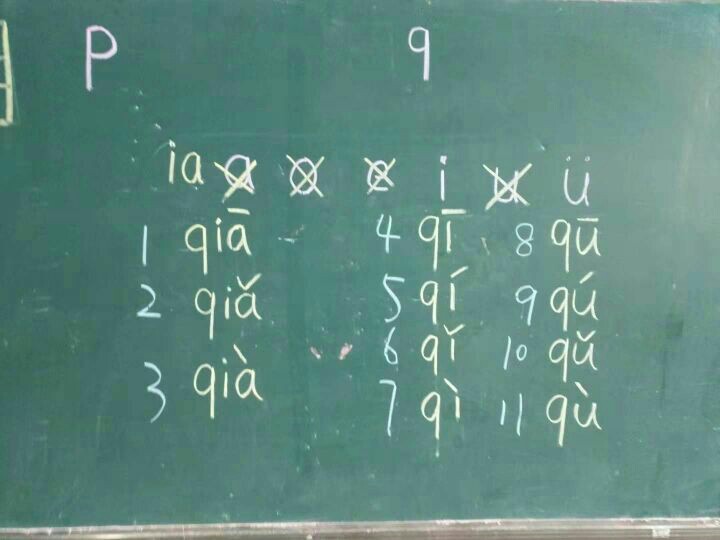 p q
ia a o e i u ü
1 qiā 4 qī 8 qū
2 qiǎ 5 qí 9 qú
3 qià 6 qǐ 10 qǔ
7 qì 11 qù